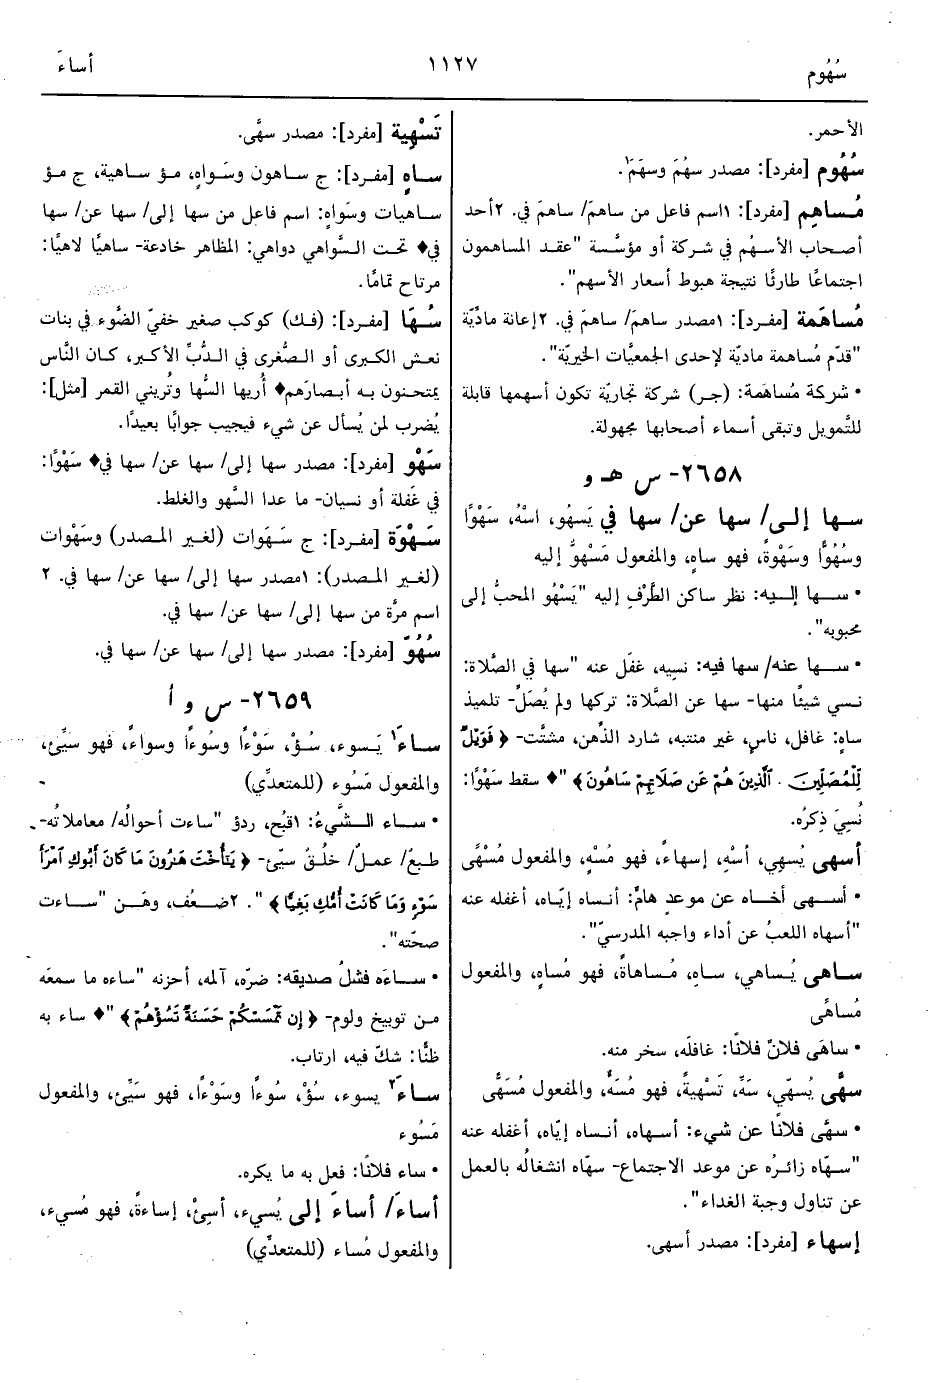 سُهُوم
١١٢٧
أساءَ
الأحمر.
سُهُوم [مفرد]: مصدر سهُمَ وسهَمَ¹.
مُساهِم [مفرد]: ١اسم فاعل من ساهمَ/ ساهمَ في. ٢أحد
أصحاب الأسهُم في شركة أو مؤسَّسة "عقد المساهمون
اجتماعًا طارئًا نتيجة هبوط أسعار الأسهم".
مُساهَمة [مفرد]: ١مصدر ساهمَ/ ساهمَ في. ٢إعانة مادّيّة
"قدّم مُساهمة ماديّة لإحدى الجمعيَّات الخيريَّة".
• شركة مُساهَمة: (جر) شركة تجاريّة تكون أسهمها قابلة
للتَّمويل وتبقى أسماء أصحابها مجهولة.
٢٦٥٨- س هـ و
سها إلى/ سها عن/ سها في يَسهُو، اسْهُ، سَهْوًا
وسُهُوًّا وسَهْوةً، فهو ساهٍ، والمفعول مَسْهوٌّ إليه
• سها إليه: نظر ساكن الطَّرْفِ إليه "يَسْهُو المحبُّ إلى
محبوبه".
• سها عنه/ سها فيه: نسِيه، غفَل عنه "سها في الصَّلاة:
نسي شيئًا منها- سها عن الصَّلاة: تركها ولم يُصَلِّ- تلميذ
ساهٍ: غافل، ناسٍ، غير منتبه، شارد الذِّهن، مشتَّت- ﴿فَوَيْلٌ
لِلْمُصَلِّينَ. الَّذِينَ هُمْ عَنْ صَلَاتِهِمْ سَاهُونَ﴾ "♦ سقط سَهْوًا:
نُسِيَ ذِكرُه.
أسهى يُسهِي، أسْهِ، إسهاءً، فهو مُسْهٍ، والمفعول مُسْهًى
• أسهى أخاه عن موعدٍ هامٍّ: أنساه إيّاه، أغفله عنه
"أسهاه اللعبُ عن أداء واجبه المدرسيّ".
ساهى يُساهي، ساهِ، مُساهاةً، فهو مُساهٍ، والمفعول
مُساهًى
• ساهَى فلانٌ فلانًا: غافلَه، سخر منه.
سهَّى يُسهّي، سَهِّ، تَسْهيةً، فهو مُسَهٍّ، والمفعول مُسَهًّى
• سهَّى فلانًا عن شيء: أسهاه، أنساه إيّاه، أغفله عنه
"سهّاه زائرُه عن موعد الاجتماع- سهّاه انشغالُه بالعمل
عن تناول وجبة الغداء".
إسهاء [مفرد]: مصدر أسهى.
تَسْهِية [مفرد]: مصدر سهَّى.
ساهٍ [مفرد]: ج ساهون وسَواهٍ، مؤ ساهية، ج مؤ
ساهيات وسَواهٍ: اسم فاعل من سها إلى/ سها عن/ سها
في♦ تحت السَّواهي دواهي: المظاهر خادعة- ساهيًا لاهيًا:
مرتاح تمامًا.
سُها [مفرد]: (فك) كوكب صغير خفيّ الضَّوء في بنات
نعش الكبرى أو الصُّغرى في الدُّبِّ الأكبر، كان النَّاس
يمتحنون به أبصارَهم♦ أُريها السُّها وتُريني القمر [مثل]:
يُضرب لمن يُسأل عن شيء فيجيب جوابًا بعيدًا.
سَهْو [مفرد]: مصدر سها إلى/ سها عن/ سها في♦ سَهْوًا:
في غَفلة أو نسيان- ما عدا السَّهو والغلط.
سَهْوَة [مفرد]: ج سَهَوات (لغير المصدر) وسَهْوات
(لغير المصدر): ١مصدر سها إلى/ سها عن/ سها في. ٢
اسم مرَّة من سها إلى/ سها عن/ سها في.
سُهُوّ [مفرد]: مصدر سها إلى/ سها عن/ سها في.
٢٦٥٩- س و أ
ساءَ¹ يَسوء، سُؤْ، سَوْءًا وسُوءًا وسواءً، فهو سيِّئ،
والمفعول مَسُوء (للمتعدِّي)
• ساء الشَّيءُ: ١قبُح، ردؤ "ساءت أحوالُه/ معاملاتُه-
طبعٌ/ عملٌ/ خلُقٌ سيّئ- ﴿يَاأُخْتَ هَارُونَ مَا كَانَ أَبُوكِ امْرَأَ
سَوْءٍ وَمَا كَانَتْ أُمُّكِ بَغِيًّا﴾ ". ٢ضعُف، وهَن "ساءت
صحّته".
• ساءَه فشلُ صديقه: ضرّه، آلمه، أحزنه "ساءه ما سمعَه
من توبيخ ولوم- ﴿إِنْ تَمْسَسْكُمْ حَسَنَةٌ تَسُؤْهُمْ﴾ "♦ ساء به
ظنًّا: شكّ فيه، ارتاب.
ساءَ² يسوء، سُؤْ، سُوءًا وسَوْءًا، فهو سَيِّئ، والمفعول
مَسُوء
• ساء فلانًا: فعل به ما يكره.
أساءَ/ أساءَ إلى يُسيء، أسِئْ، إساءةً، فهو مُسيء،
والمفعول مُساء (للمتعدِّي)